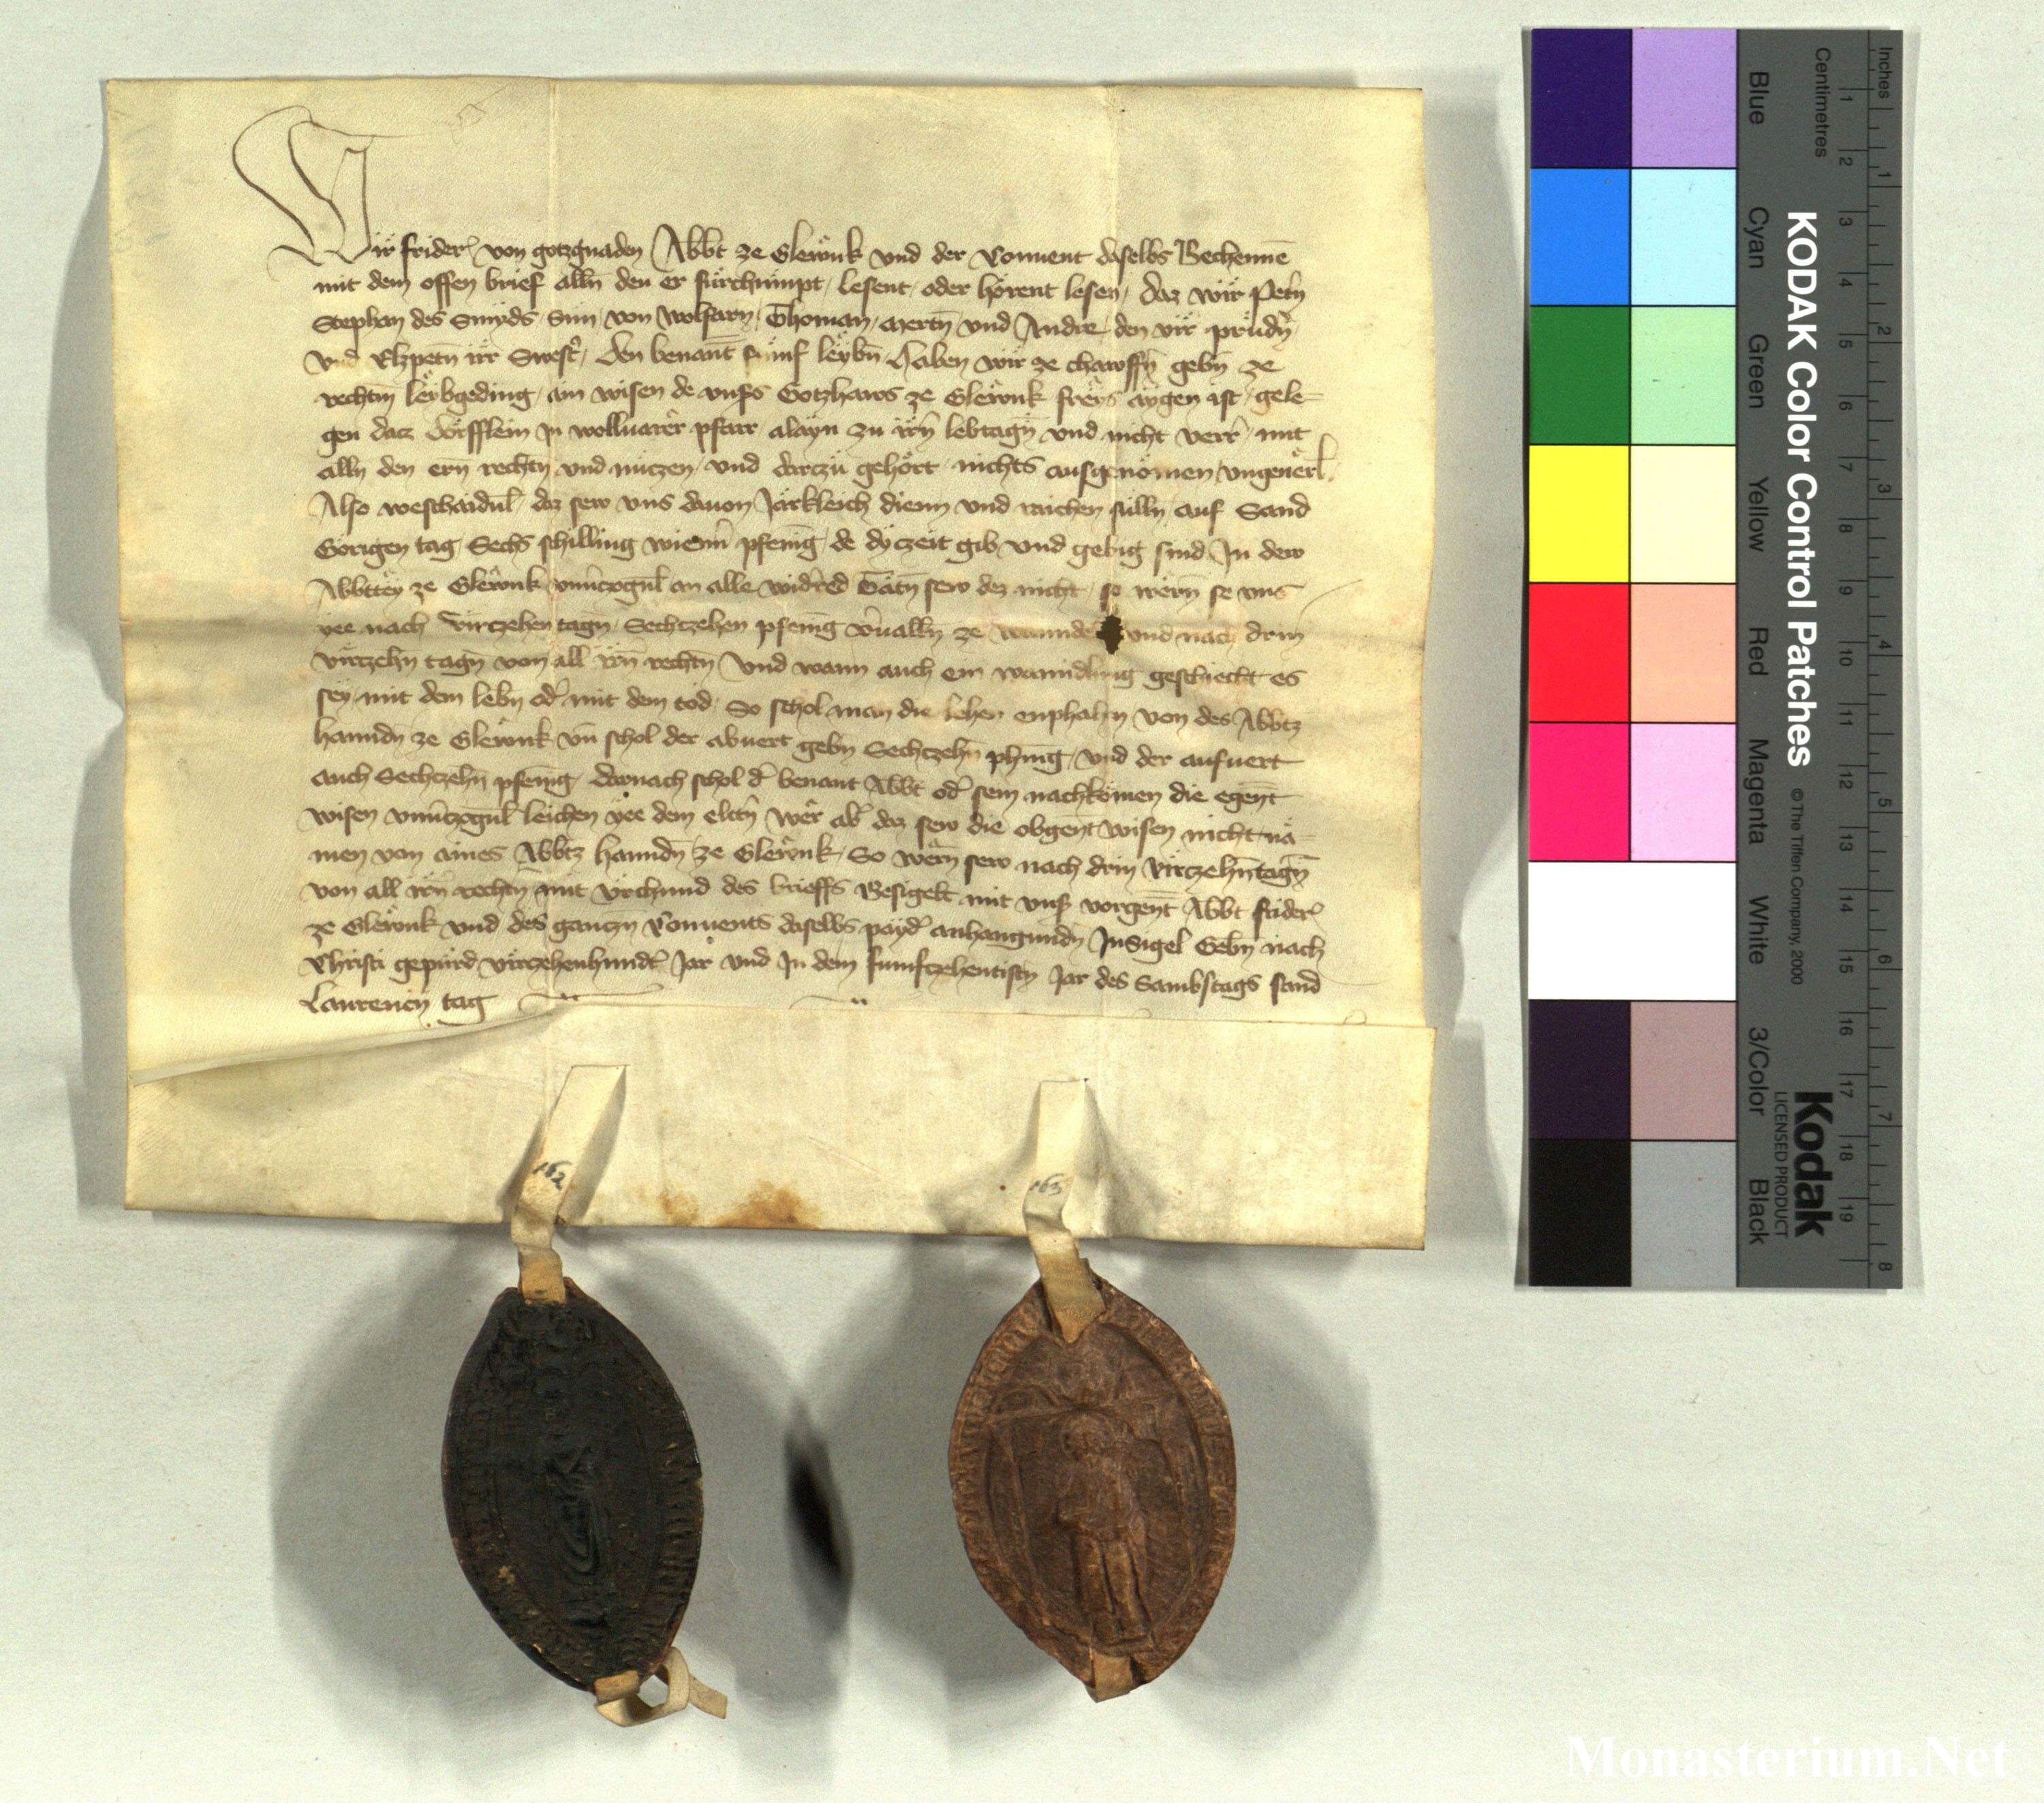 Wir frider von gotzgnaden Abbt ze Glewnk vnd der Conuent daselbs Bechenne
mit dem offen brief alln den er fürchümpt, lesent oder hörent lesen, daz wir Petn
Stephan des Smyds Sün von Wolfarn, Thoman, Mertn vnd Andre den vir prudn
vnd Elzpetn irr Swest, den benant fünf leybn Haben wir ze chawffn gebn ze
rechtm leybgeding, ain wisen de vnss Gotzhaws ze Glewnk freys aygen ist, gele-
gen datz dörfflein in wolluarer pfarr alayn zu irn lebtagn vnd nicht verr, mit
alln den ern rechtn vnd nützen, vnd darczu gehört nichts ausgenömen vngeuerl.
Also weschaidnl daz sew vns dauon Järkleich dienn vnd raichen sülln auf Sand
Görigen tag, Sechs schilling wienn pfenig de dyczeit gib vnd gebig sind In dew
Abbttey ze Glewnk vnuczogul an alle widred Tätn sew dez nicht, so wern se vns
yee nach virczehen tagn, Sechczehen pfenig veualln ze wannde vnd nach drin
virczehn tagn von all irn rechtn Vnd wann auch ein wanndlung geschiecht es
sey mit dem lebn od mit dem tod, So schol man die lehen enphahn von des Abbtz
hanndn ze Glewnk vn schol der abuert gebn Sechczehn phnig, vnd der aufuert
auch Sechczehn pfenig, darnach schol d benant Abbt od sein nachkömen die egent
wisen vnuczogul leichen yee dem eltn wer ab daz sew die obgent wisen nicht nä-
men von aines Abbtz hanndn ze Glewnk, So wern sew nach drin Virczehntagn
von all irn rechtn mit vrchund des brieffs Besigelt mit vnss vorgent Abbt frider
ze Glewnk vnd des ganczn Conuents daselbs payd anhangundn InSigel Gebn nach
Christi gepürd virczehenhundt Jar vnd In dem fumfczehentistn Jar des Sambstags sand
Laurencii tag
162
163
KODAK Color Control Patches
©The Tiffen Company, 2000
Kodak
LICENSED PRODUCT
Blue
Cyan
Green
Yellow
Red
Magenta
White
3/Color
Black
Inches
1 2 3 4 5 6 7 8
Centimetres
1 2 3 4 5 6 7 8 9 10 11 12 13 14 15 16 17 18 19
Monasterium.Net